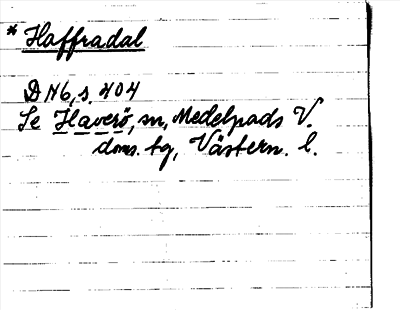 * Haffradal
DN6, s. 404
Se Haverö, sn, Medelpads V.
doms. tg, Västern. l.